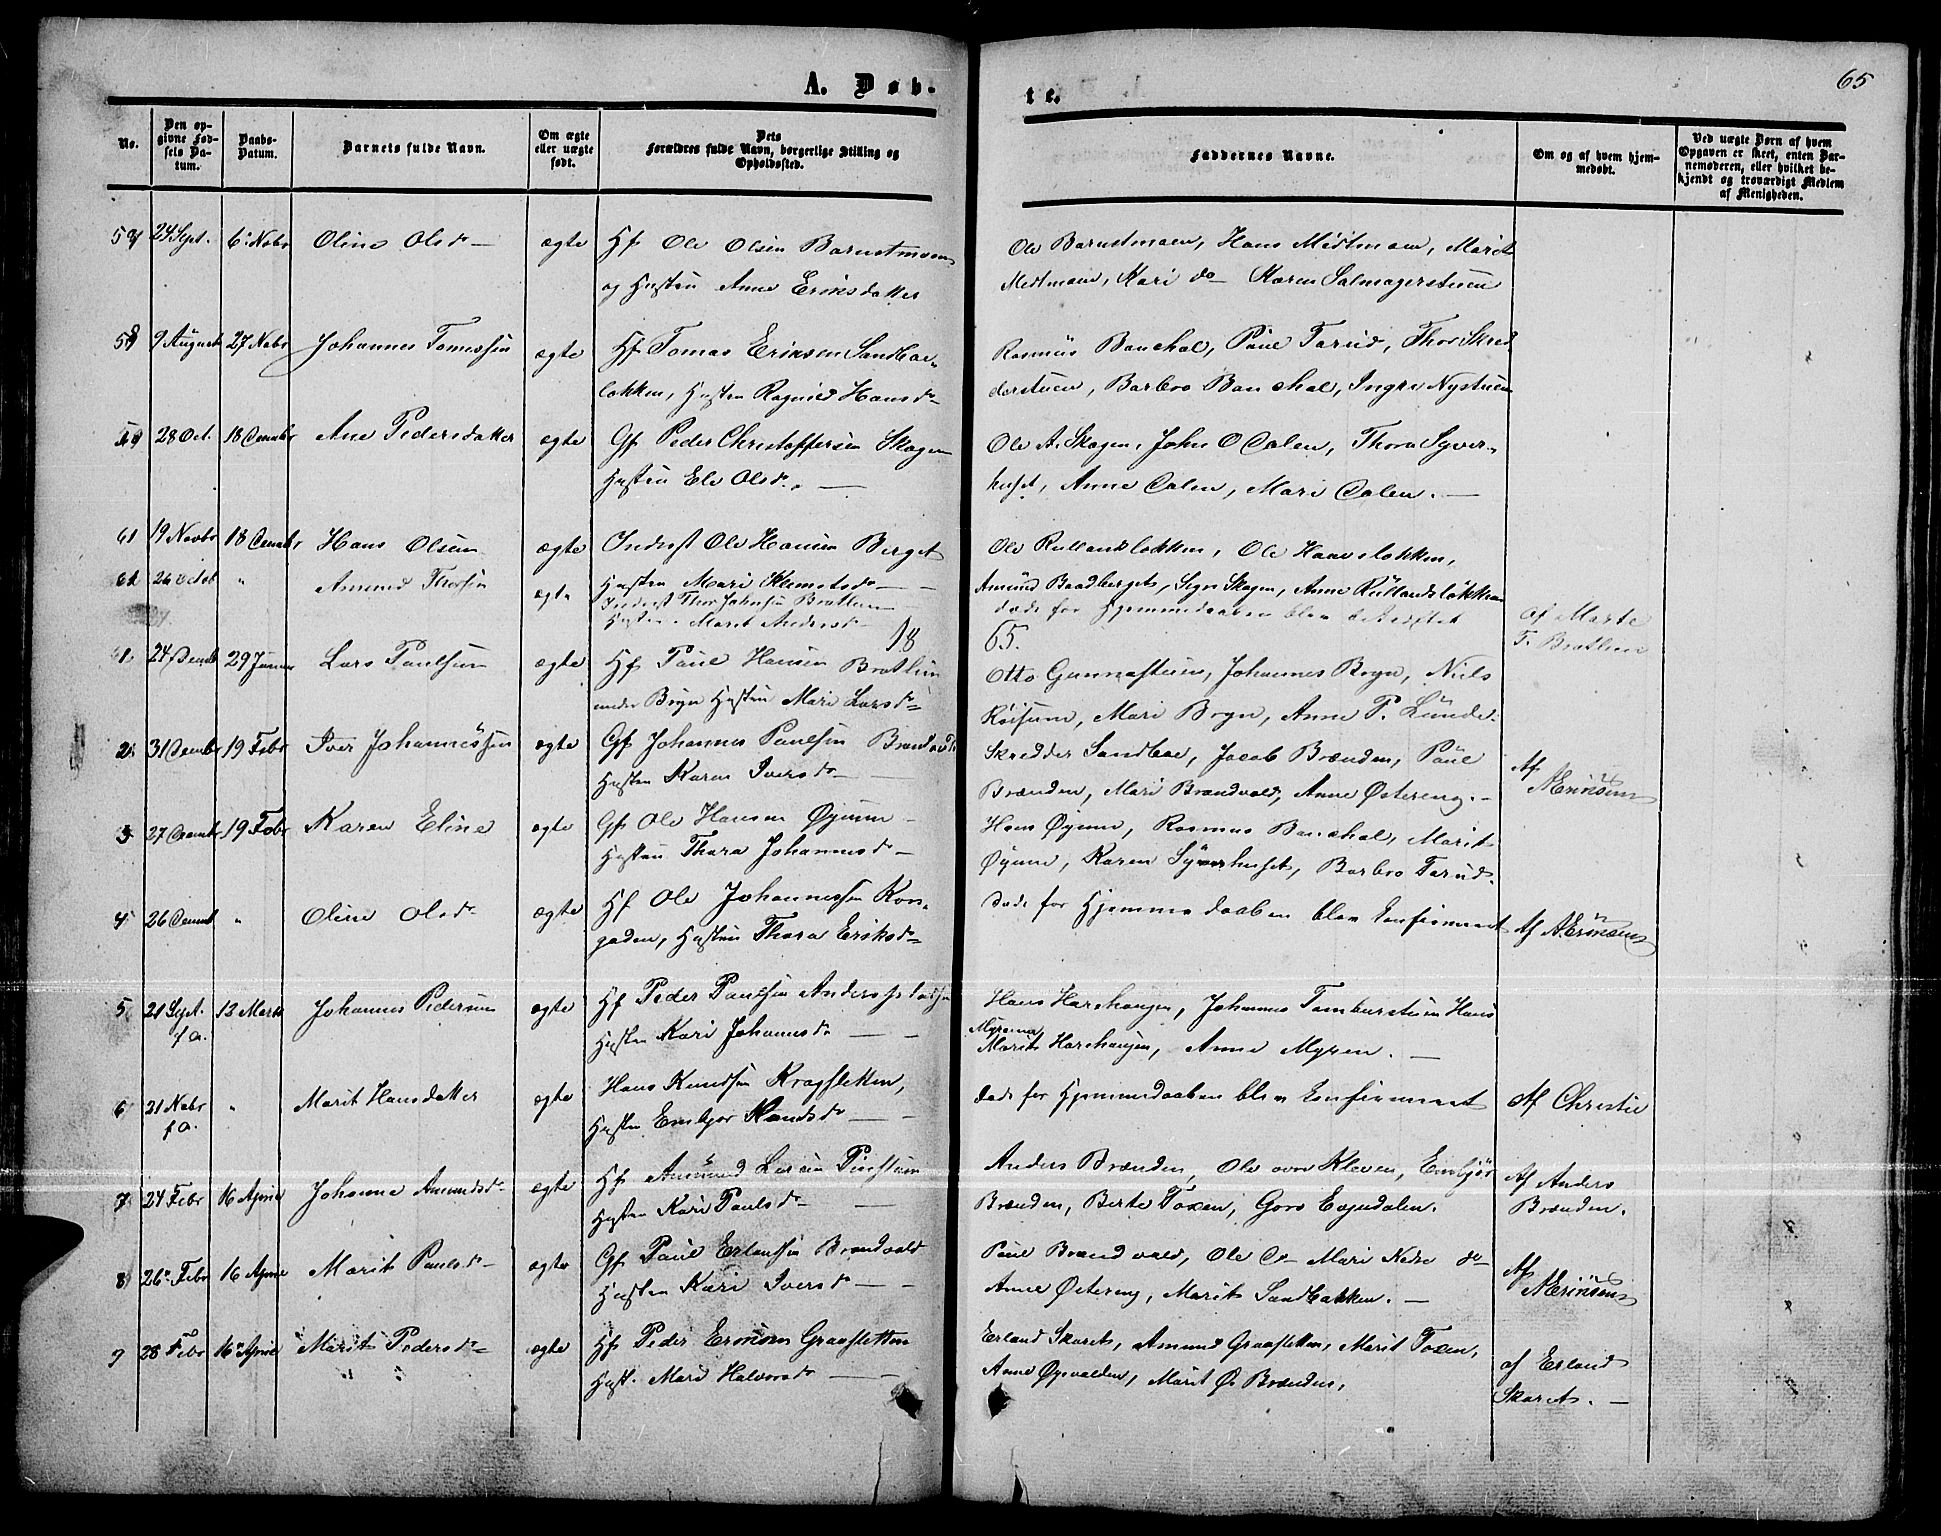 A. Døb-
te.
65
No.
Den op-
givne Fød-
sels Da-
tum.
Daabs-
Datum.
Barnets fulde Navn.
Om ægte
eller uægte
født.
Dets
Forældres fulde Navn, borgerlige Stilling og
Opholdssted.
Faddernes Navne.
Om og af hvem hjem-
medøbt.
Ved uægte Børn af hvem
Opgaven er skeet, enten Bar-
nemoderen, eller hvilket be-
kjendt og troværdigt Medlem
af Menigheden.
24 Sept. 6 Nobr Oline Olsd. ægte Hf Ole Olsen
og Hustru Anne Eriksdatter
Ole Hans Midtmoen, Marit
Medtmoen, Kari do Karen Salmagerstuen
9 August 27 Nobr Johannes Tomessen ægte Hf Tomas Eriksen Sandbæ-
løkken, Hustru Ragnild Hansd.
Rasmus Paul Tarud, Thor Skred
derstuen, Barbro Ingri Nystuen
28 Oct. 18 Decembr Ane Pedersdatter ægte Gf Peder Christoffersen Skogen
Hustru Eli Olsd.
Ole A. Skogen, John O Dalen, Thora Syver-
huset, Anne Dalen, Mari Dalen.
61 19 Novbr 18 Decembr Hans Olsen ægte Inderst Ole Hansen Berget
Hustru Mari Klemetsd.
Ole Rullandsløkken, Ole Haaveløkken,
Amund Baadberget, Sigri Skogen, Anne Rullandsløkken
26 Octob " Amund Thorsen ægte Inderst Thor Johnsen Bratlien
Hustru Marit Andersd.
døde før Hjemmedaaben blev
af Marte
T. Bratlien
18
65.
1. 24 Decemb 29 Januar Lars Paulsen ægte Hf Paul Hansen Bratlien
under Bryn Hustru Mari Larsd.
Otto Gunnastuen, Johannes Bryn, Niels
Røisum, Mari Bryn, Anne P. Lunde.
2. 31 Decembr 19 Febr Iver Johannessen ægte Gf Johannes Paulsen Brandvold
Hustru Karen Iversd.
Skredder Sandboe, Jacob Brænden, Paul
Brænden, Mari Brandvold, Anne Østereng.
Af
A Eriksen
3 27 Decembr 19 Febr Karen Eline ægte Gf Ole Hansen Øyum
Hustru Thora Johannesd.
Hans Øyum, Rasmus Marit
Øyum, Karen Syverhuset, Barbro Tarud.
4 26 Decemb " Oline Olsd. ægte Hf Ole Johannessen Kon-
gaden, Hustru Thora Eriksd.
Døde før Hjemmedaaben blev confirmeret
Af A Eriksen
5 21 Sept. 12 Marts Johannes Pedersen ægte Hf Peder Paulsen
f a. Hustru Kari Johannsd.
Hans Harehaugen, Johannes Tamburstuen Hans
Myrom
Marit Harehaugen, Anne Myren.
6 21 Nobr " Marit Hansdatter ægte Hans Knudsen Kragsletten,
f a. Hustru Embjør Knudsd.
Døde før Hjemmedaaben blev confirmeret
Af Christie
7 24 Febr 16 April Johanne Amundsd. ægte Hf Amund Larsen
Hustru Kari Paulsd.
Anders Brænden, Ole over Kleven, Embjør
Brænden, Berte Toxen, Goro
Af Anders
Brænden.
8 26 Febr 16 April Marit Paulsd. ægte Gf Paul Erlandsen Brandvold
Hustru Kari Iversd.
Paul Brandvold, Ole Do Mari Nedre do
Anne Østereng, Marit Sandbakken.
Af
A Eriksen
9 28 Febr 16 April Marit Pedersd. ægte Hf Peder Eriksen Graasletten
Hust. Mari Halvorsd.
Erland Skaret, Amund Graasletten, Marit Toxen,
Anne Øyavolden, Marit Ø. Brænden,
af Erland
Skaret.